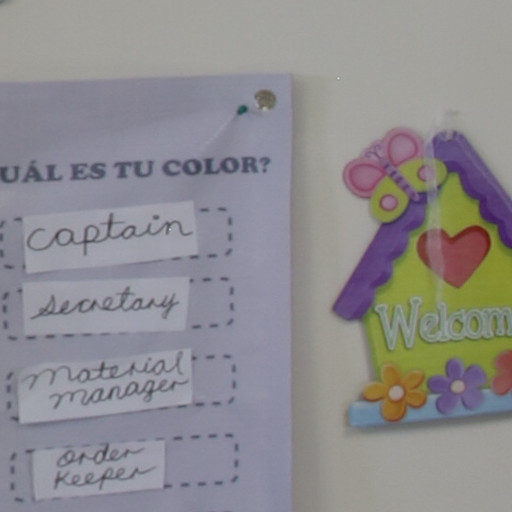 UÁL ES TU COLOR?
captain
secretary
material
manager
order
keeper
Welcom